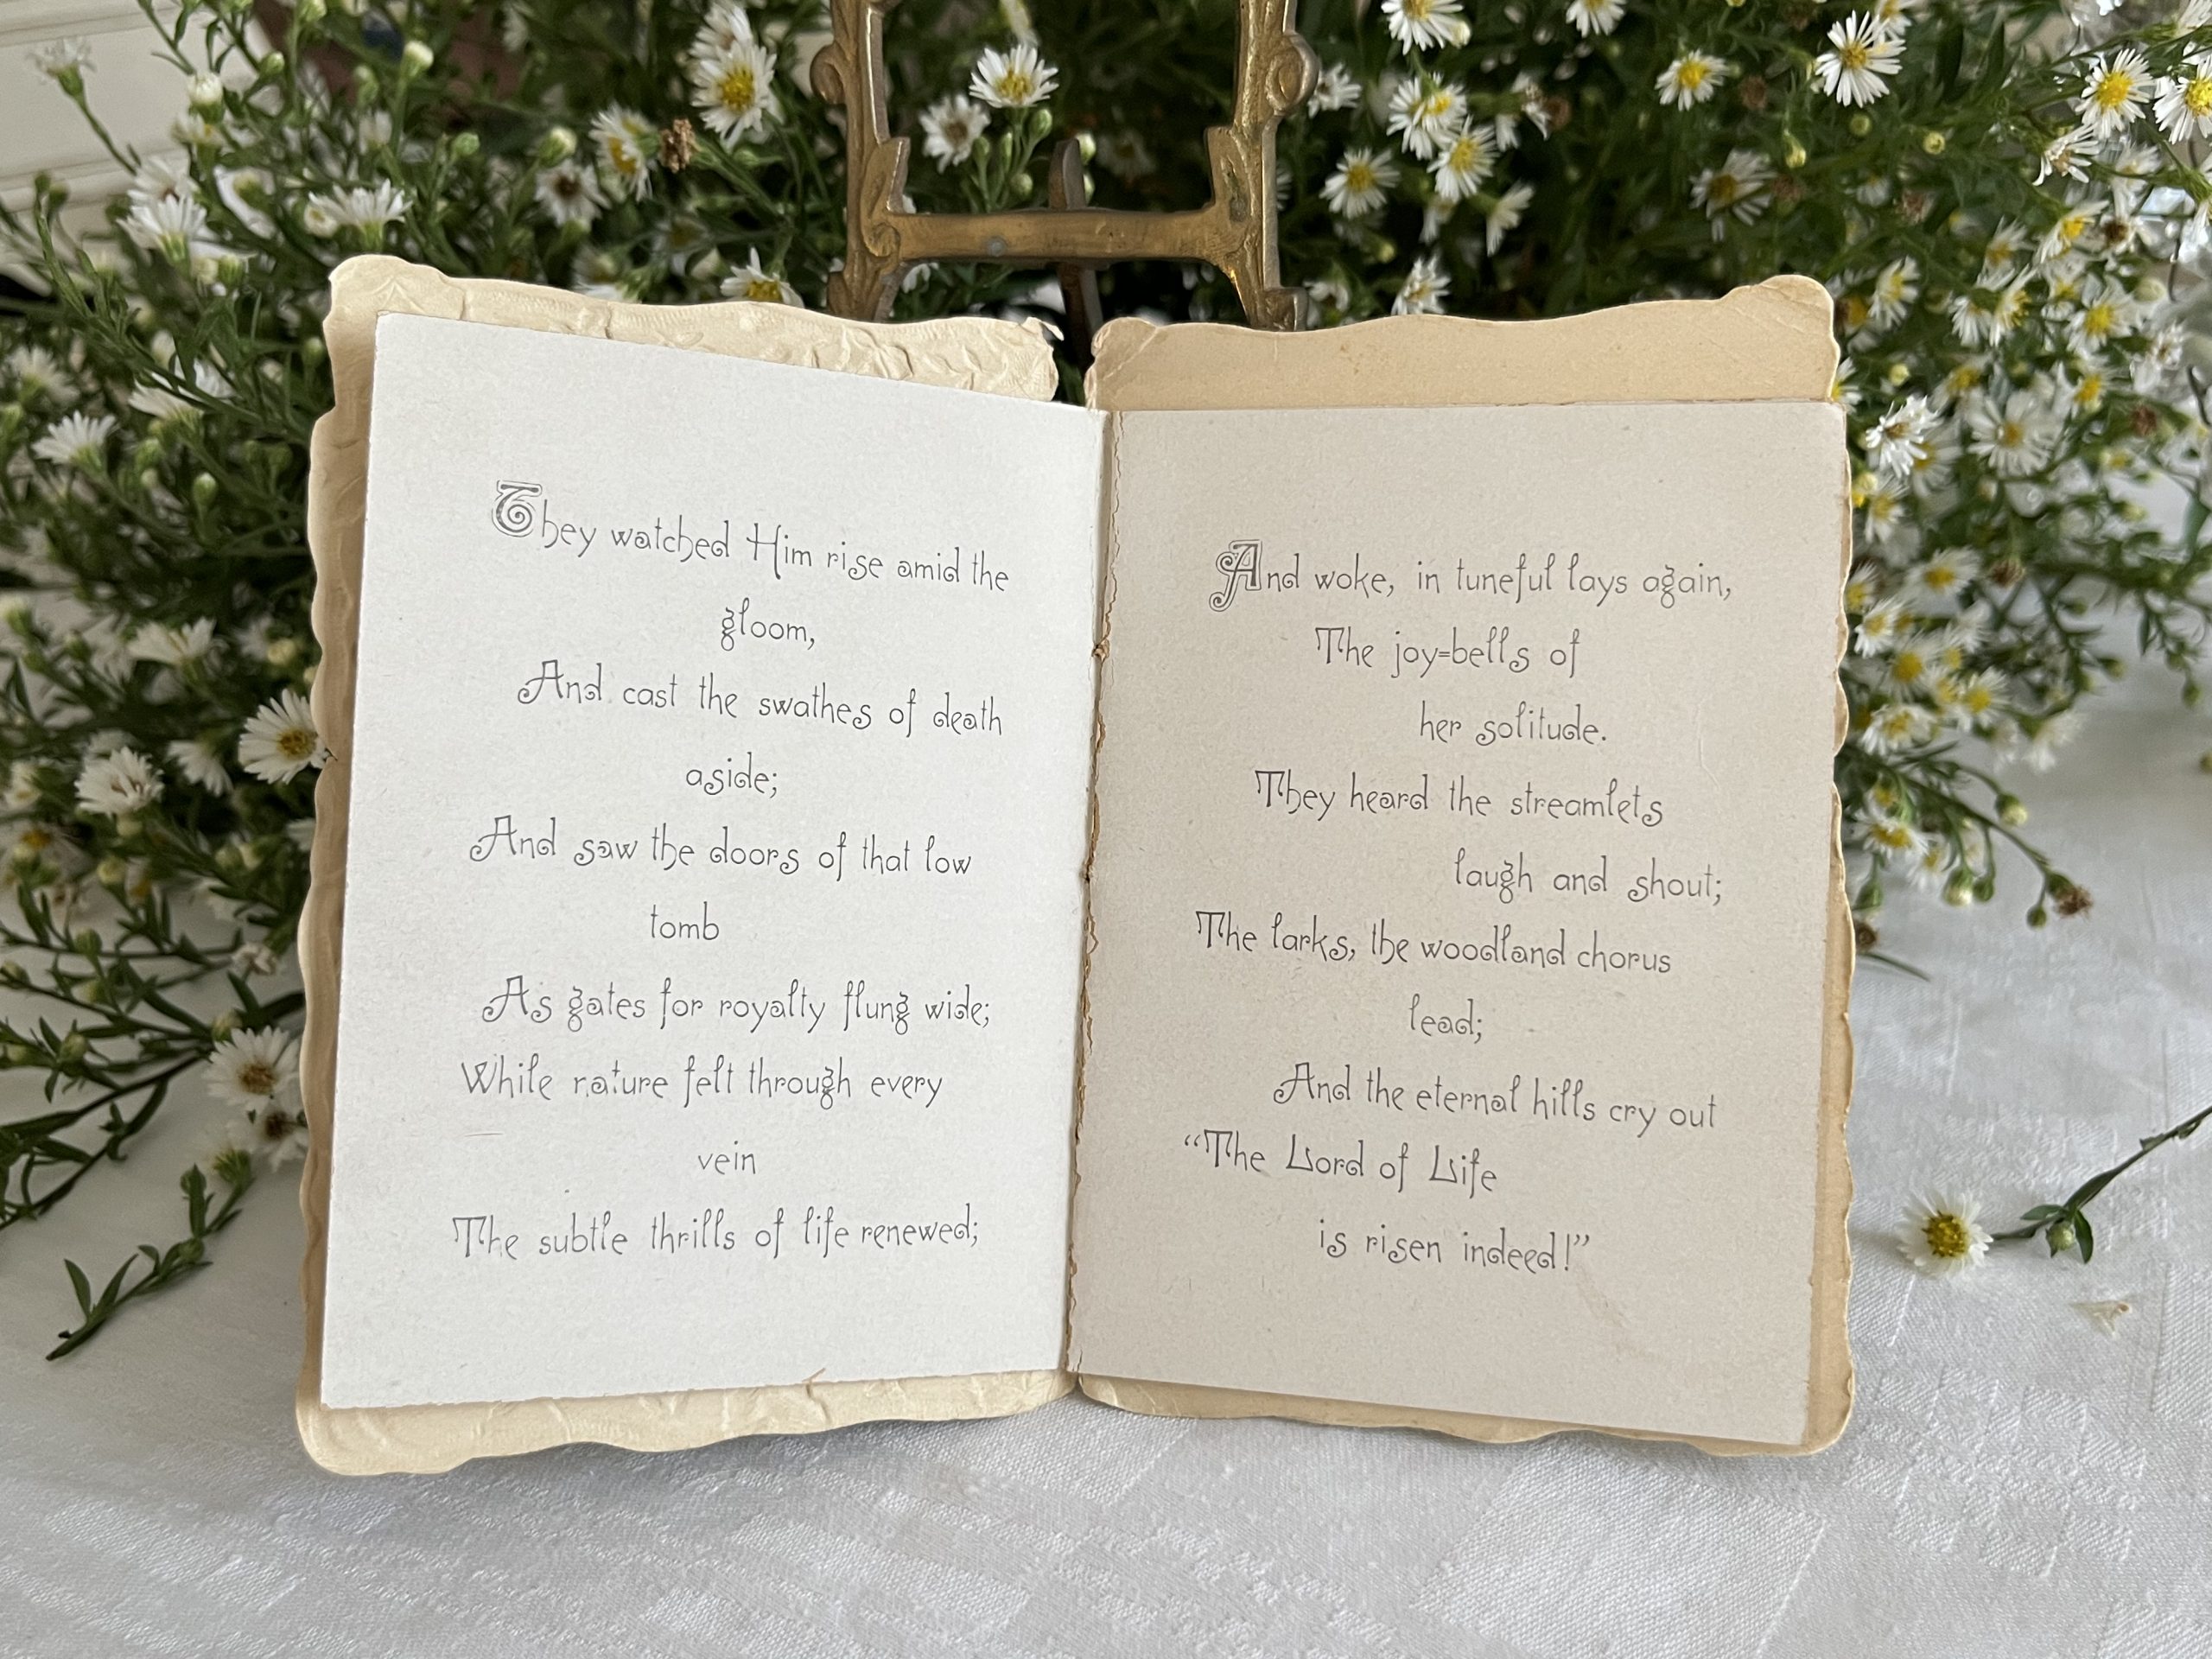 They watched Him rise amid the
gloom,
And cast the swathes of death
aside;
And saw the doors of that low
tomb
As gates for royalty flung wide;
While nature felt through every
vein
The subtle thrills of life renewed;
And woke, in tuneful lays again,
The joy=bells of
her solitude.
They heard the streamlets
laugh and shout;
The larks, the woodland chorus
lead;
And the eternal hills cry out
“The Lord of Life
is risen indeed!”